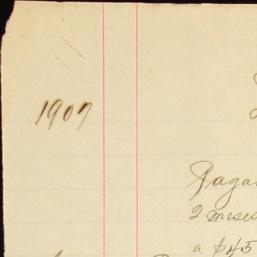 1907
Paga
2 meses
a $45